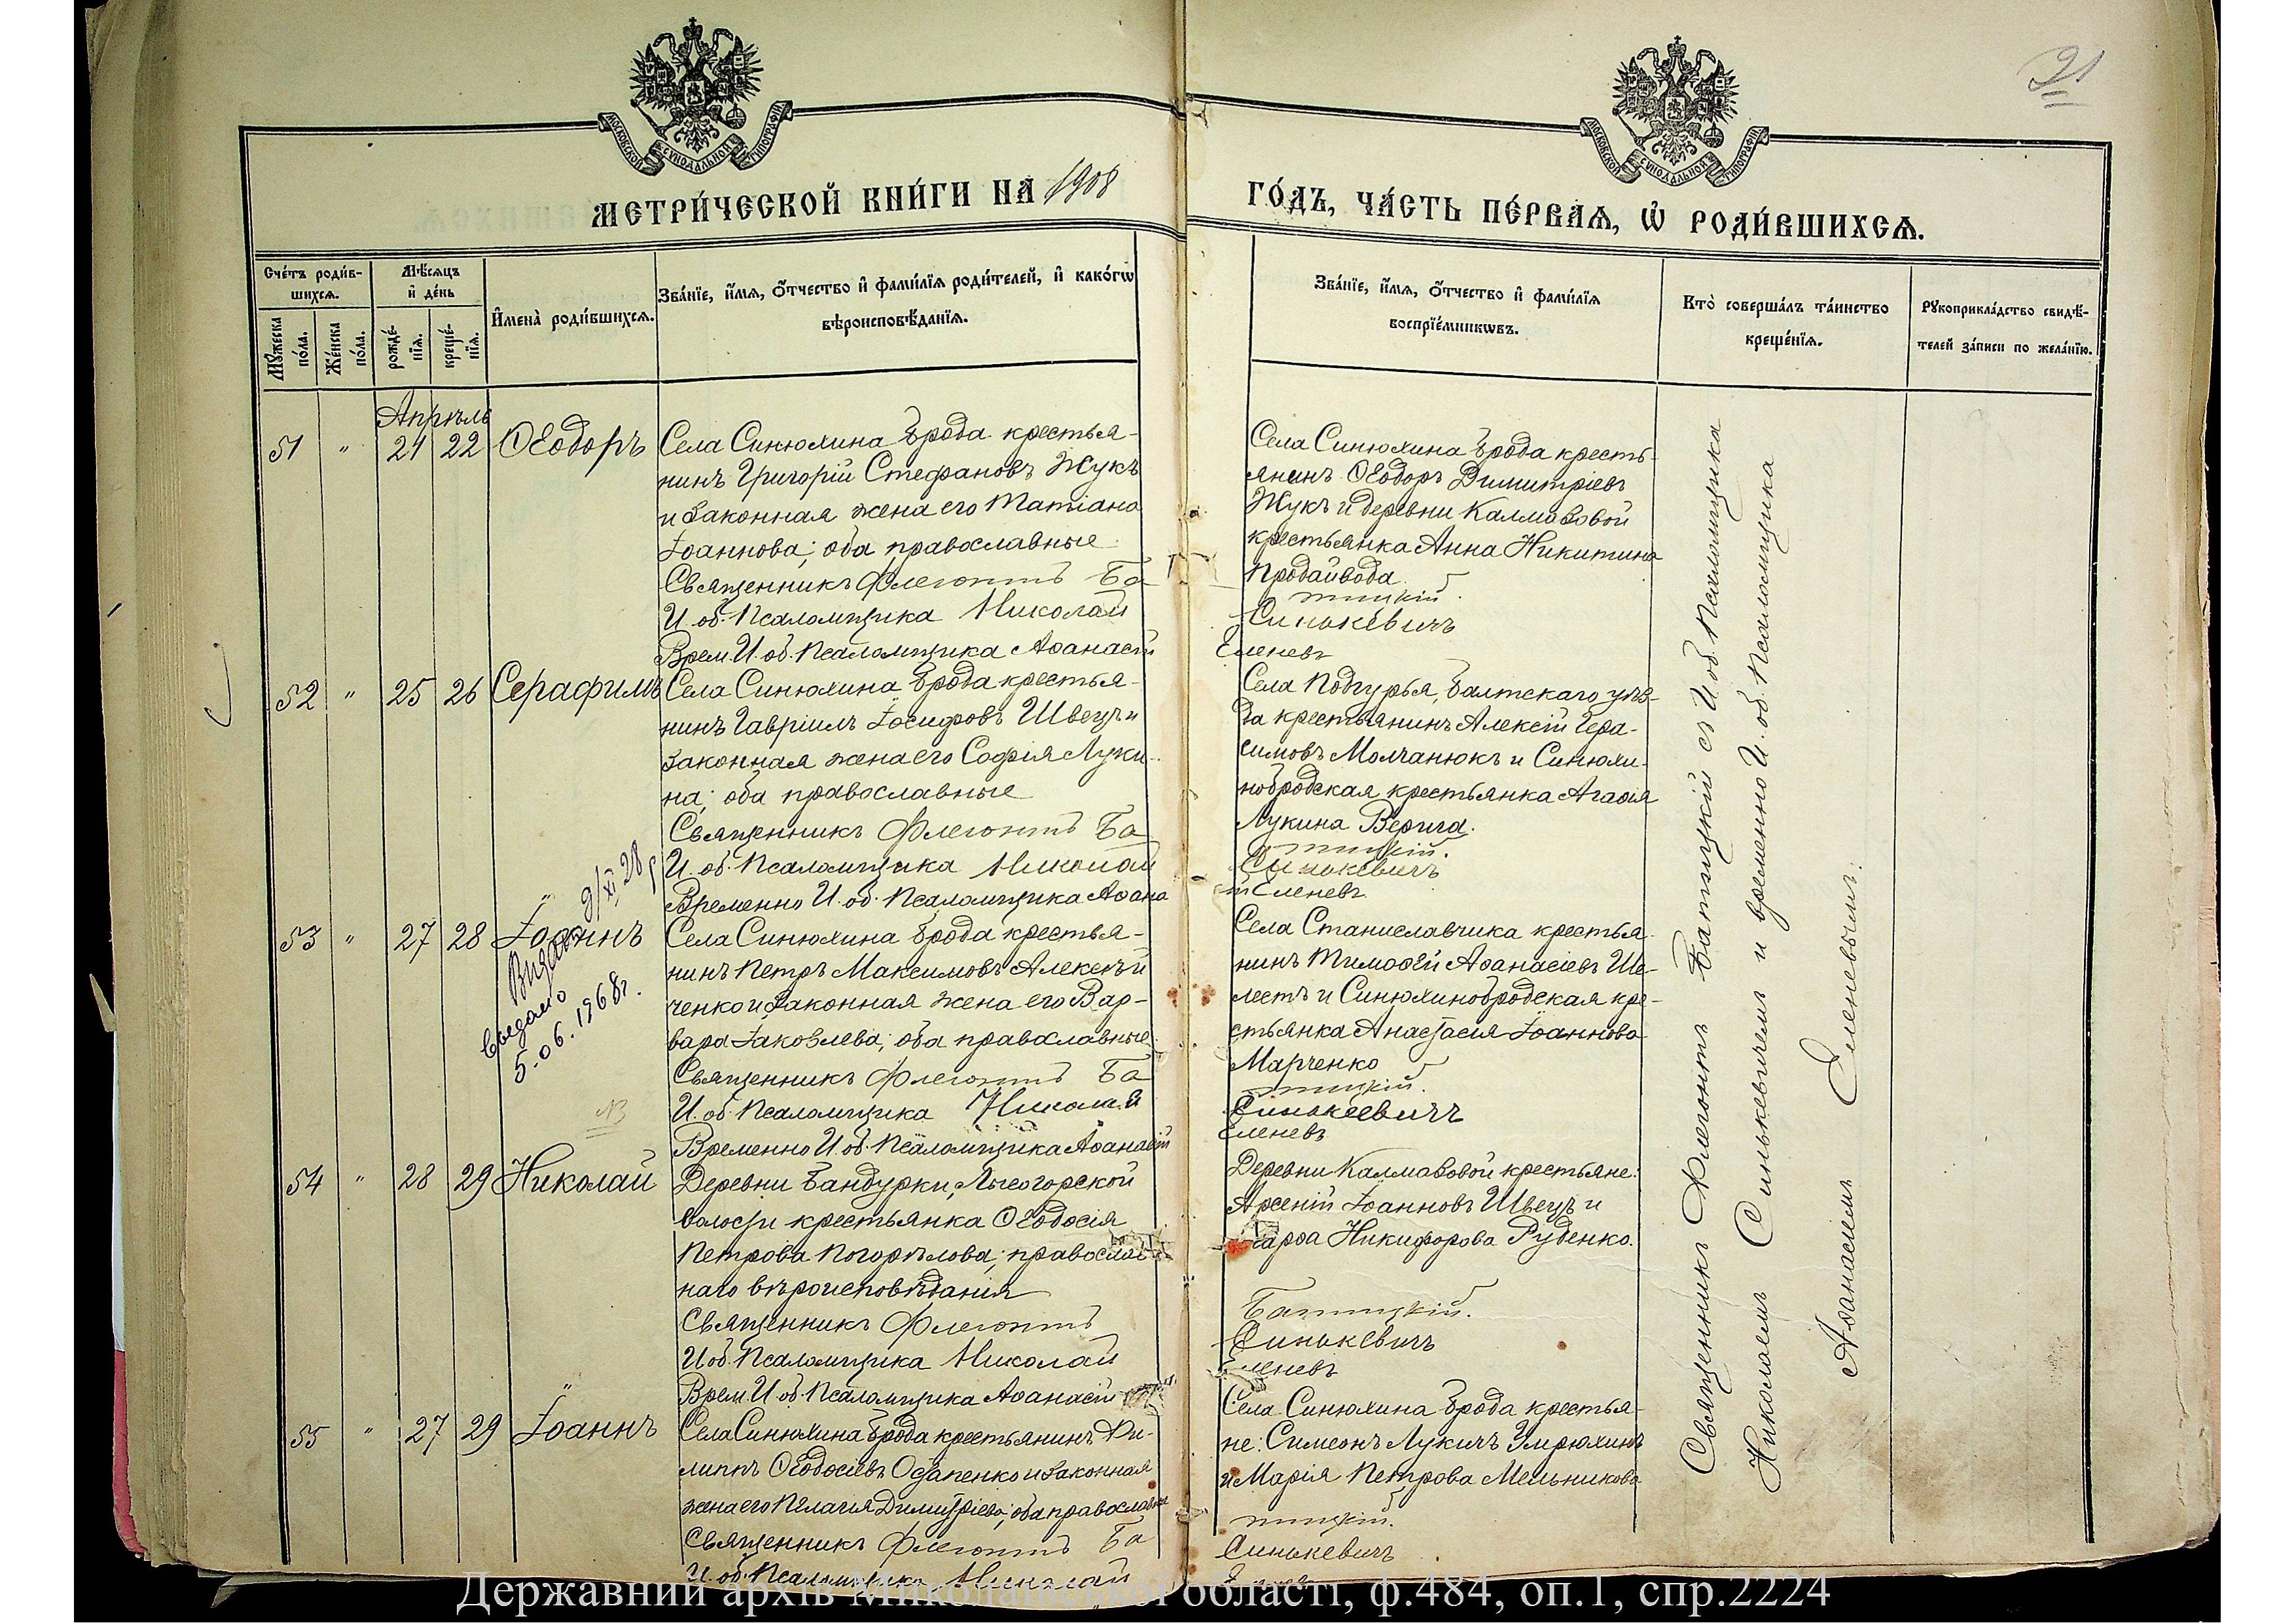 21
МОСКОВСКОЙ СѴНОДАЛЬНОЙ ТИПОГРАФІИ
МОСКОВСКОЙ СѴНОДАЛЬНОЙ ТИПОГРАФІИ
МЕТРИ́ЧЕСКОЙ КНИ́ГИ НА 1908
ГО́ДЪ, ЧА́СТЬ ПЕ́РВАѦ, Ѡ҆ РОДИ́ВШИХСѦ.
Сче́тъ роди́в-
шихсѧ.
Мꙋ́жеска по́ла.
Же́нска по́ла.
Мѣ́сѧцъ
и҆ де́нь
рожде́-
нїѧ.
креще́-
нїѧ.
И҆мена̀ роди́вшихсѧ.
Зва́нїе, и҆́мѧ, ѻ҆́тчество и҆ фами́лїѧ роди́телей, и҆ како́гѡ
вѣроисповѣ́данїѧ.
Зва́нїе, и҆́мѧ, ѻ҆́тчество и҆ фами́лїѧ
воспрїе́мникѡвъ.
Кто̀ соверша́лъ та́инство
креще́нїѧ.
Рꙋкоприкла́дство свидѣ́-
телей за́писи по жела́нїю.
Апрѣль
51 " 21 22 Ѳеодоръ
Села Синюхина Брода крестья-
нинъ Григорій Стефановъ Жукъ
и законная жена его Татіана
Іоаннова; оба православные
Священникъ Флегонтъ Ба
И. об. Псаломщика Николай
Врем. И. об. Псаломщика Аѳанасій
Села Синюхина Брода кресть-
янинъ Ѳеодоръ Димитріевъ
Жукъ и деревни Калмазовой
крестьянка Анна Никитина
Продайвода
тицкій.
Синькевичъ
Еленевъ
52 " 25 26 Серафимъ
Села Синюхина Брода крестья-
нинъ Гавріилъ Іосифовъ Швецъ и
законная жена его Софія Луки-
на; оба православные
Священникъ Флегонтъ Ба
И. об. Псаломщика Николай
Временно И. об. Псаломщика Аѳана
Села Подгурья, Балтскаго уѣз-
да крестьянинъ Алексій Гера-
симовъ Молчанюкъ и Синюхи-
нобродская крестьянка Агаѳія
Лукина Верига.
тицкій.
Синькевичъ
ій Еленевъ
53 " 27 28 Іоаннъ
9/XI 28
Выдано
5.06.1968г.
Села Синюхина Брода крестья-
нинъ Петръ Максимовъ Алексѣй-
ченко и законная жена его Вар-
вара Іаковлева; оба православные
Священникъ Флегонтъ Ба
И. об. Псаломщика Николай
Временно И. об. Псаломщика Аѳанасій
Села Станиславчика крестья-
нинъ Тимоѳей Аѳанасіевъ Ше-
лестъ и Синюхинобродская кре-
стьянка Анастасія Іоаннова
Марченко
тицкій.
Синькевичъ
Еленевъ
54 " 28 29 Николай
Деревни Бандурки, Лысогорской
волости крестьянка Ѳеодосія
Петрова Погорѣлова; православ-
наго вѣроисповѣданія
Священникъ Флегонтъ
И об. Псаломщика Николай
Врем. И. об. Псаломщика Аѳанасій
Деревни Калмазовой крестьяне:
Арсеній Іоанновъ Швецъ и
Марѳа Никифорова Руденко.
Батицкій.
Синькевичъ
Еленевъ
55 " 27 29 Іоаннъ
Села Синюхина Брода крестьянинъ Фи-
липпъ Ѳеодосіевъ Остапенко и законная
жена его Пелагія Димитріева; оба православные
Священникъ Флегонтъ Ба
И. об. Псаломщика Николай
Села Синюхина Брода крестья-
не: Симеонъ Лукичъ
и Марія Петрова Мельникова
тицкій.
Синькевичъ
Священникъ Флегонтъ Батицкій съ И. об. Псаломщика
Николаемъ Синькевичемъ и временно И. об. Псаломщика
Аѳанасіемъ Еленевымъ.
Державний архів Миколаївської області, ф.484, оп.1, спр.2224